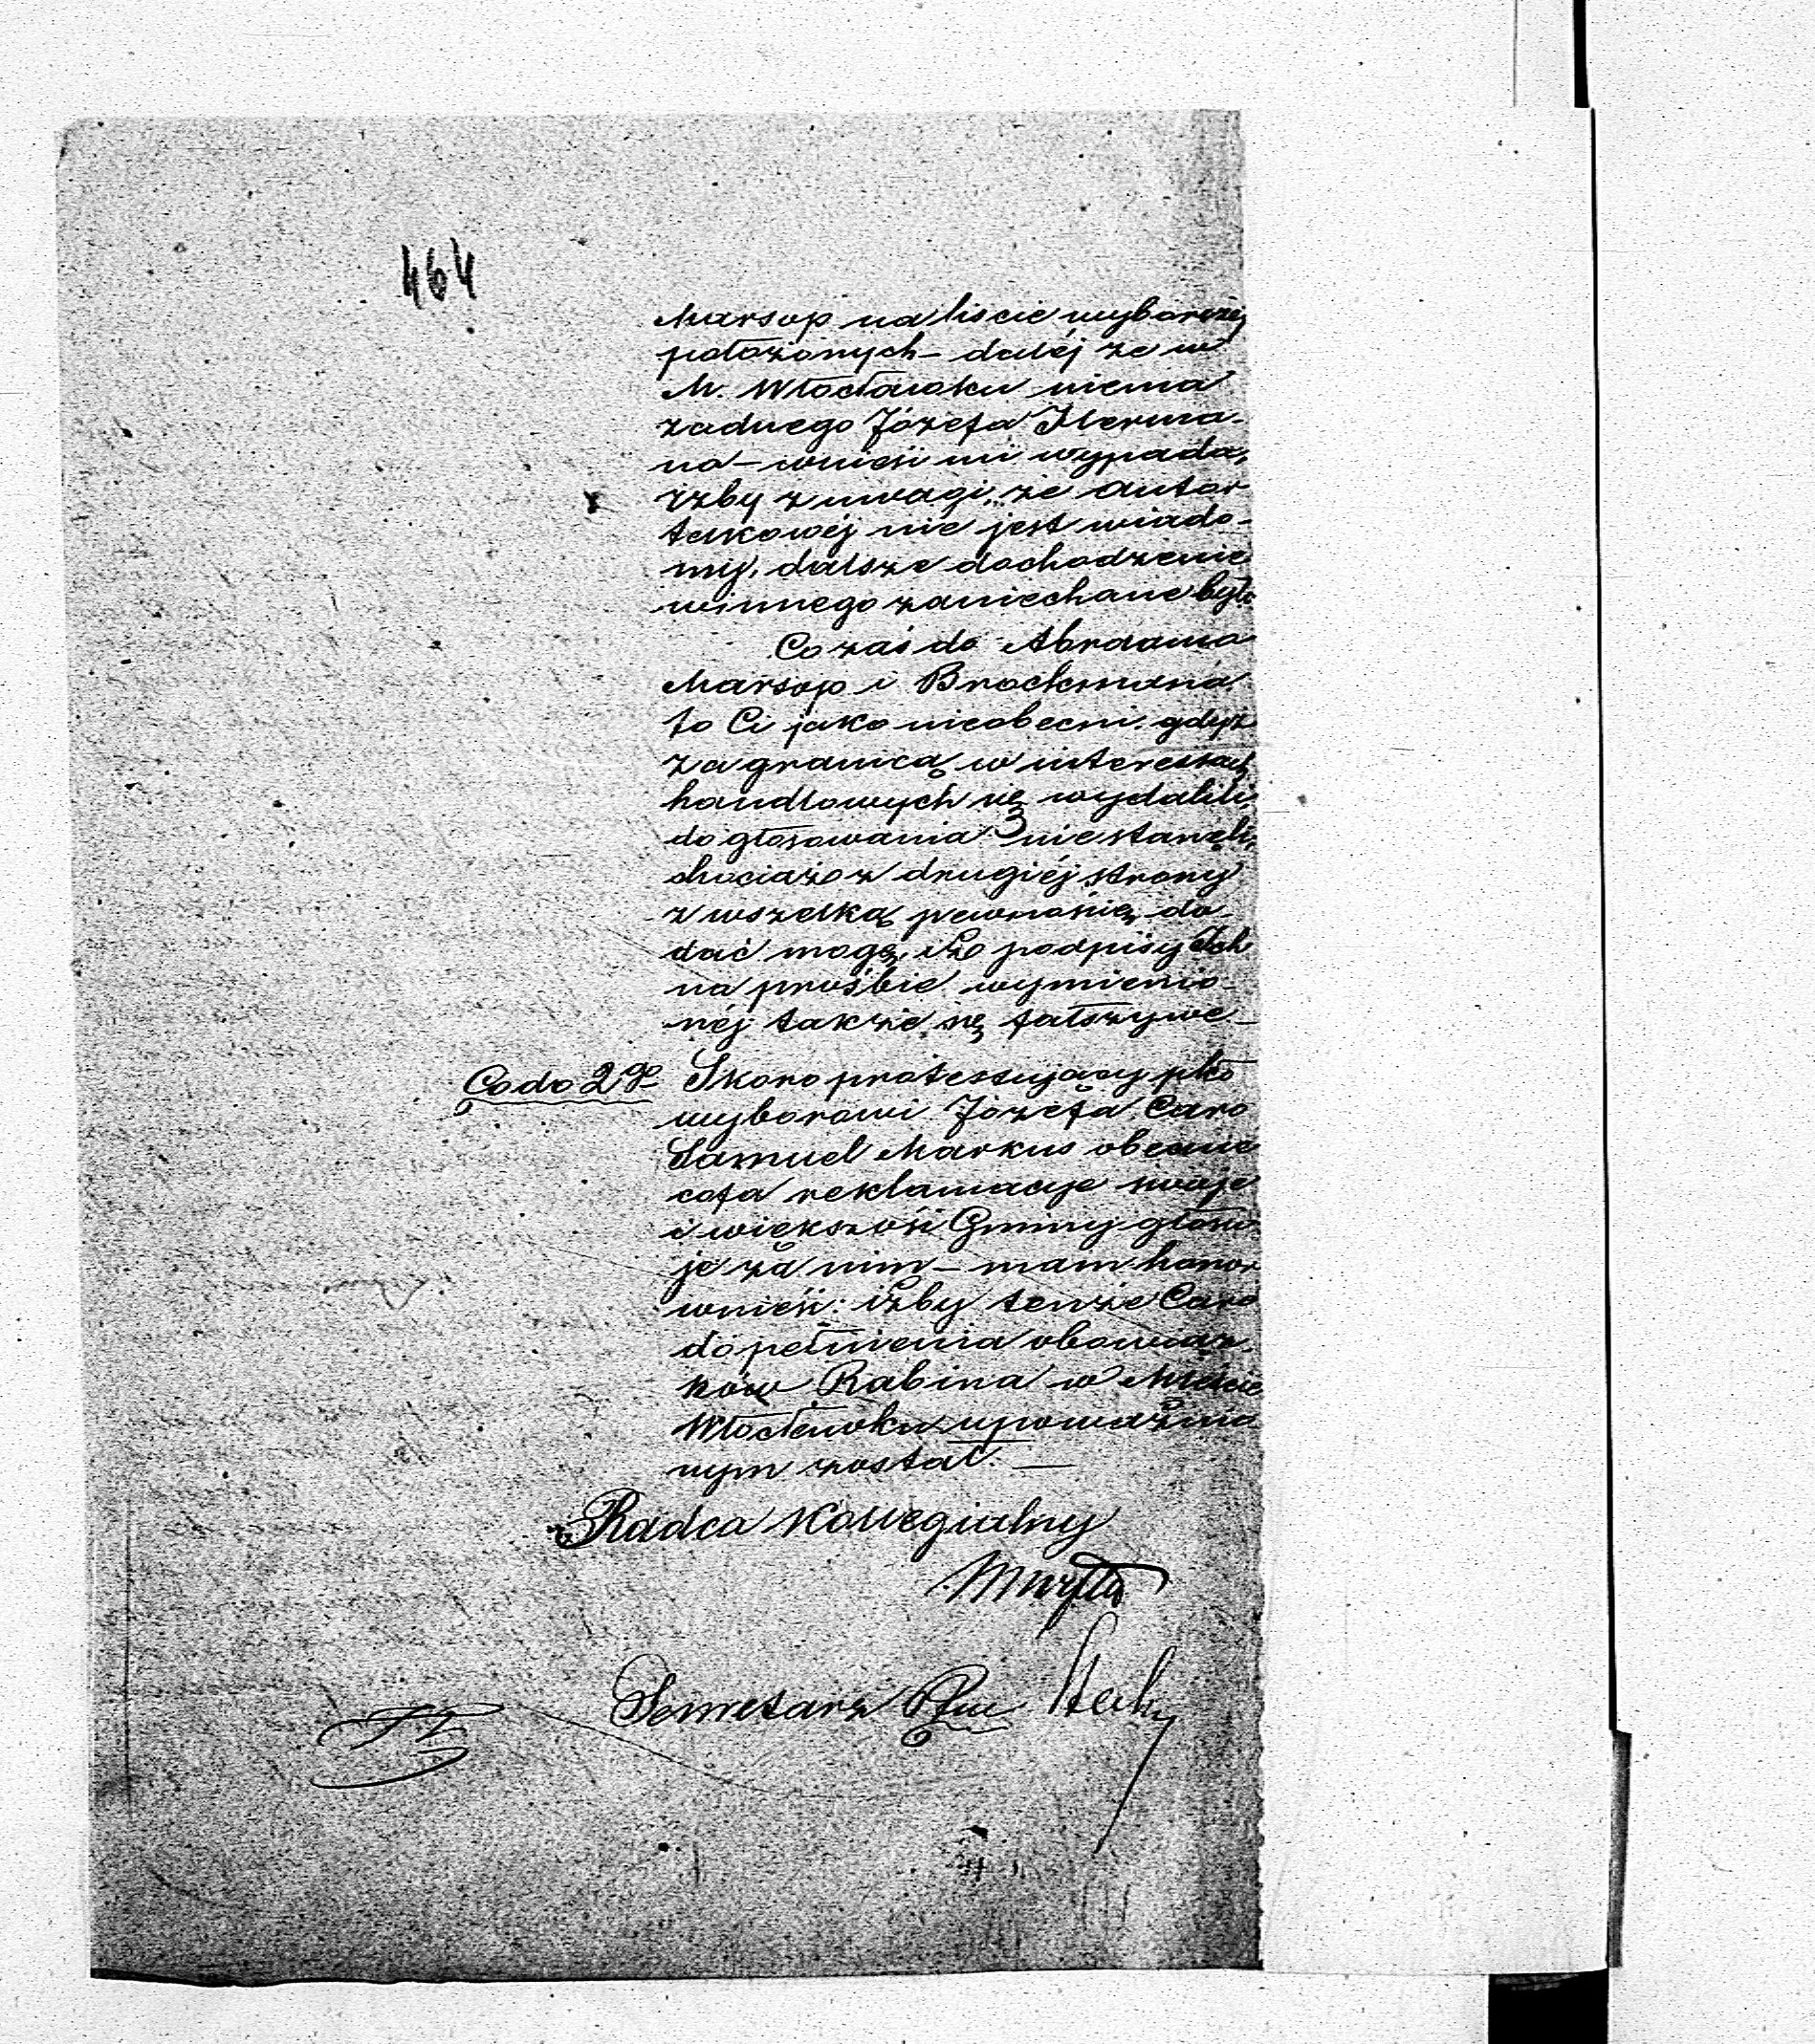 464
Marsop na liscie wyborczéj
położonych – daléj że w
M. Włocławku niema
żadnego Józefa Herma-
na – wnieść mi wypada,
iżby z uwagi, że autor
takowéj nie jest wiado-
my, dalsze dochodzenie
winnego zaniechane było
Co zaś do Abrama
Marsop i Brockmana
to Ci jako nieobecni, gdyż
za granicą w interessach
handlowych się wydalili,
do głosowania nie stanęli,
chociaż z drugiéj strony
z wszelką pewnością do-
dać mogę, iż podpisy Ich
na prośbie wymienio-
néj także są fałszywe –
Co do 2go Skoro protestujący pko
wyborowi Józefa Caro
Samuel Markus obecnie
cofa reklamacye swoje
i większość Gminy głosu
je za nim – mam honor
wnieść: iżby tenże Caro
do pełnienia obowiąz-
ków Rabina w Mieście
Włocławku upoważnio
nym został. —
Radca Kollegialny
Sekretarz